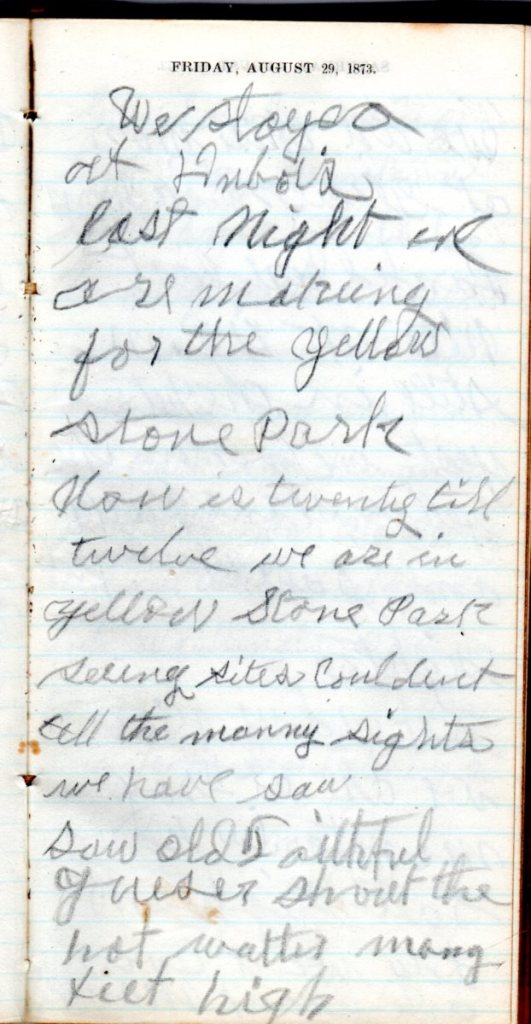 FRIDAY, AUGUST 29, 1873.
We stayed
at
last Night we
are makeing
for the yellow
stone Park
Now is twenty till
twelve we are in
yellow Stone Park
seeing sites Couldent
tell the manny sights
we have saw
saw old Faithful
Gueser shout the
hot watter many
feet high